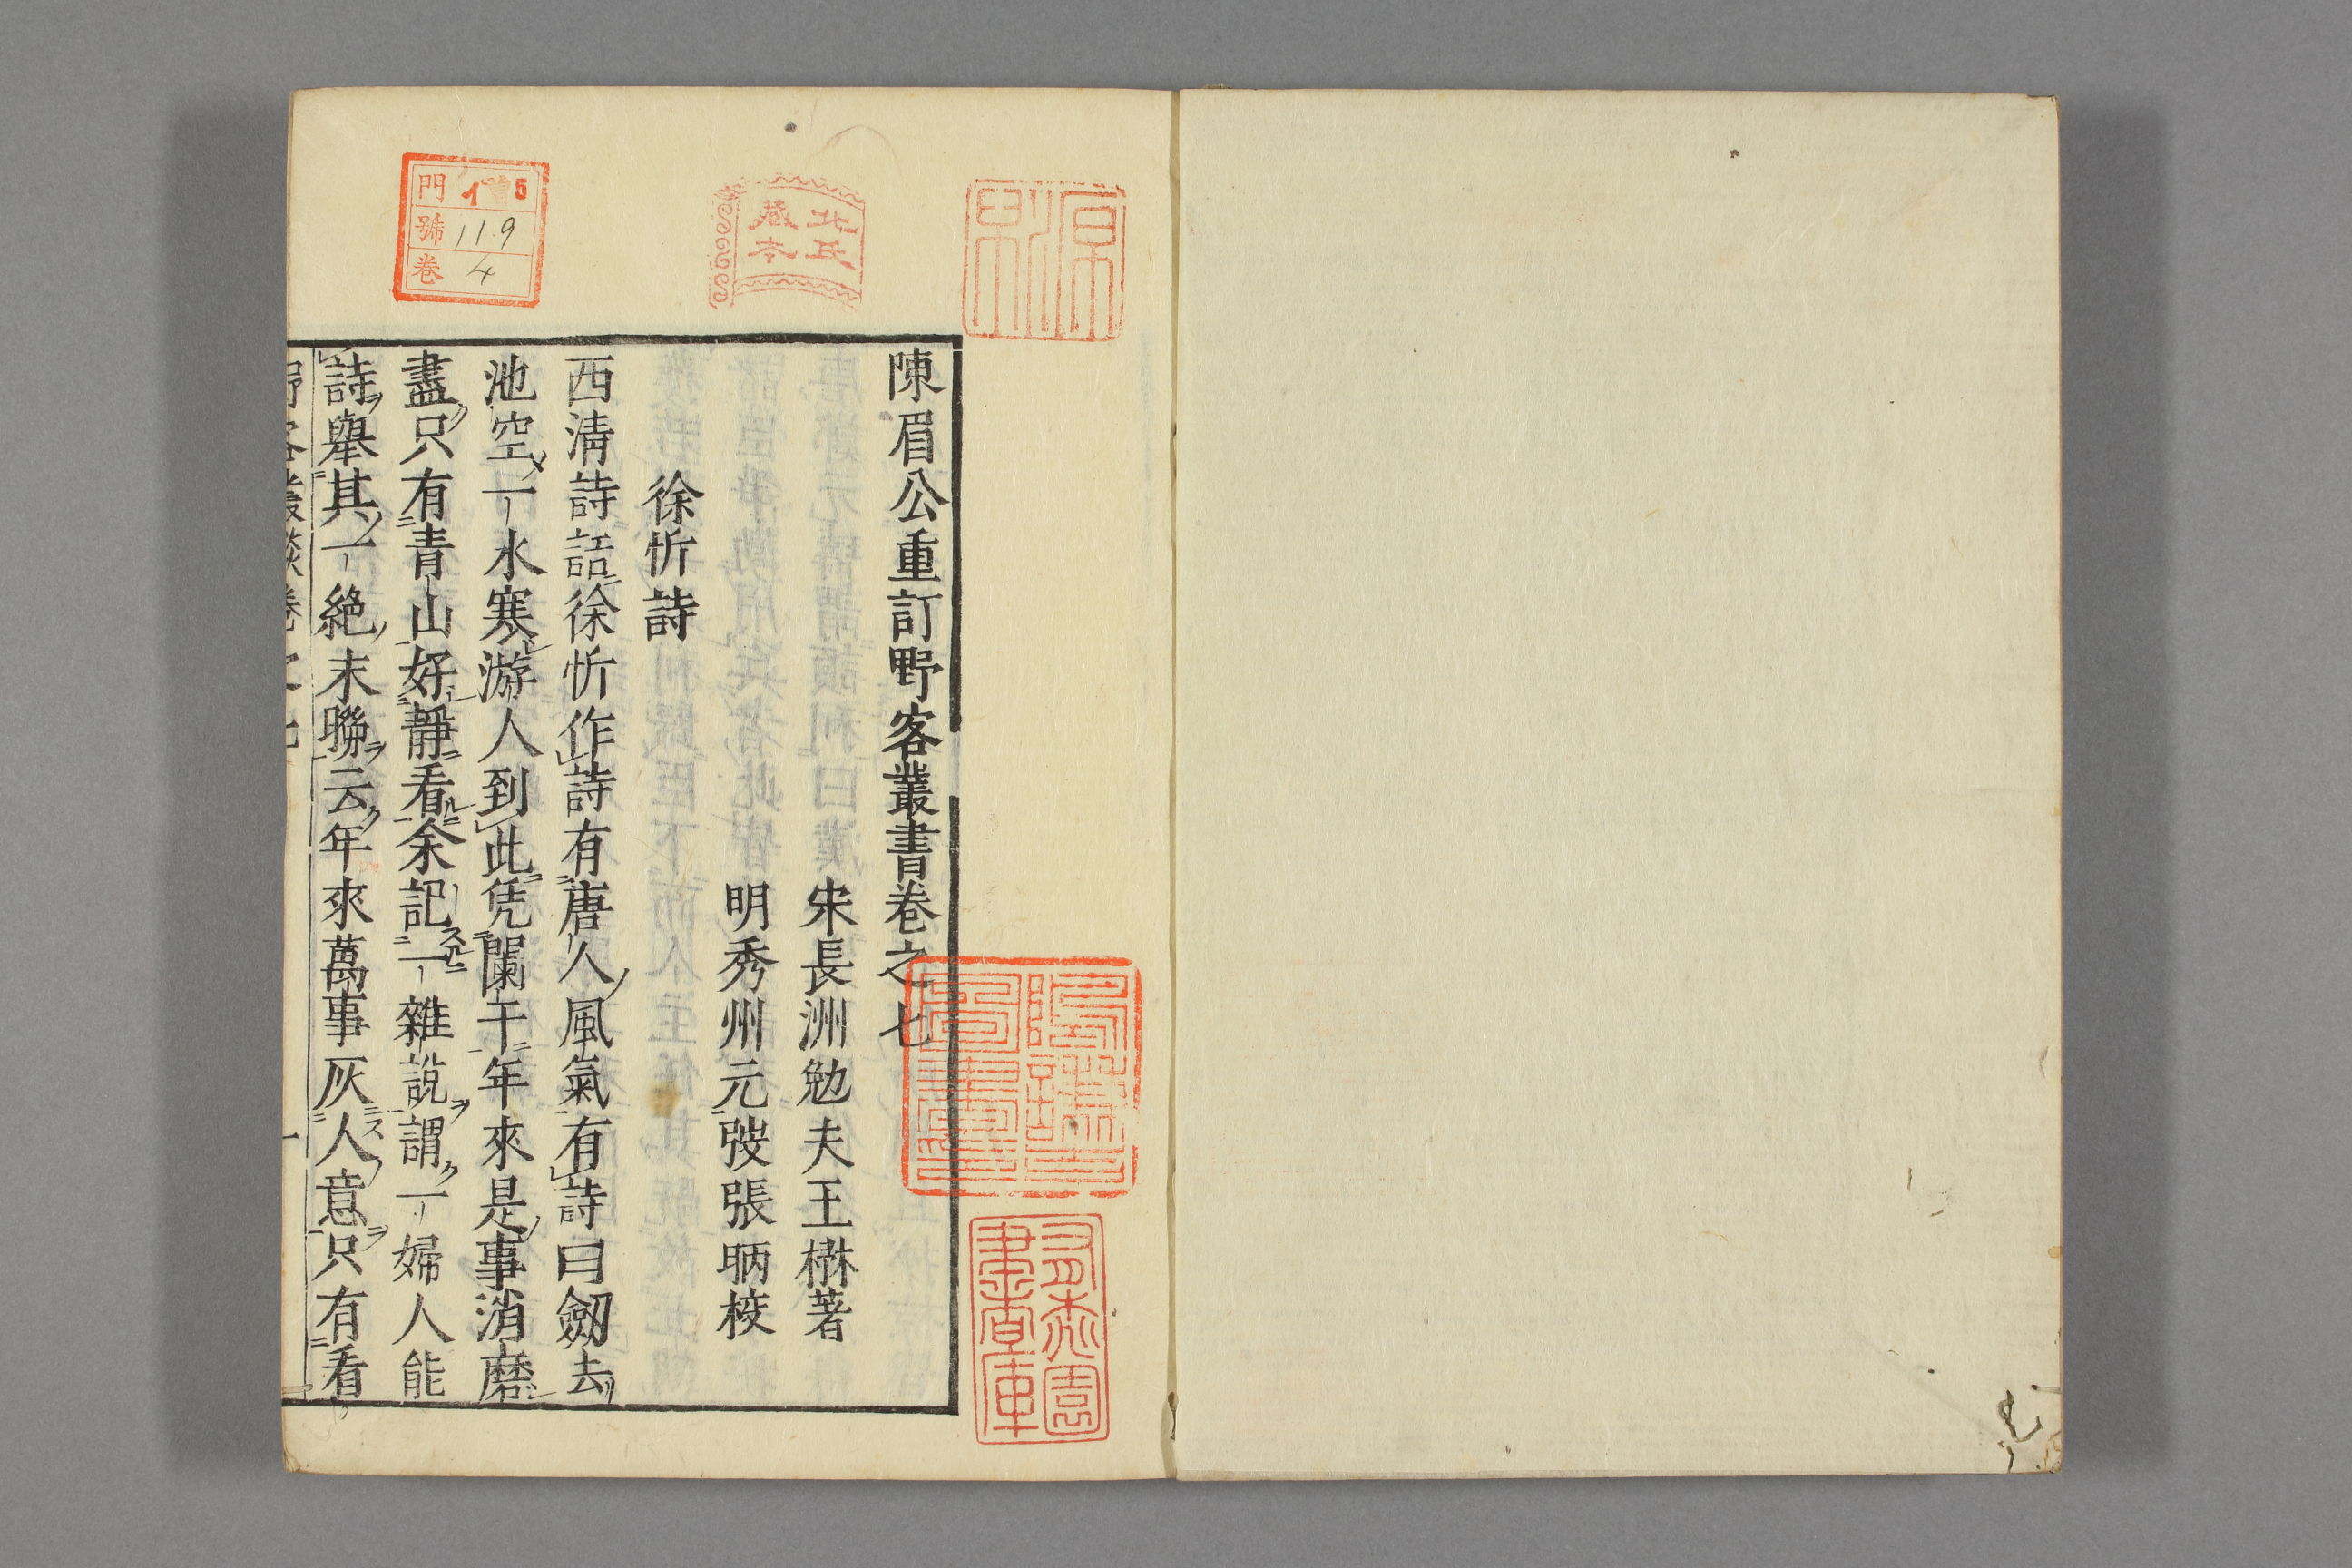 陳眉公重訂野客叢書卷之七
宋長洲勉夫王楙著
明秀州元弢張昞校
徐忻詩
西清詩話徐忻作詩有唐人風氣有詩曰劒去
池空一水寒游人到此凭闌干年來是事消磨
盡只有青山好靜看余記一雜說謂一婦人能
詩舉其一絶末聯云年來萬事灰人意只有看
野客叢書卷之七
一
門 5
號 119
卷 4
藏本